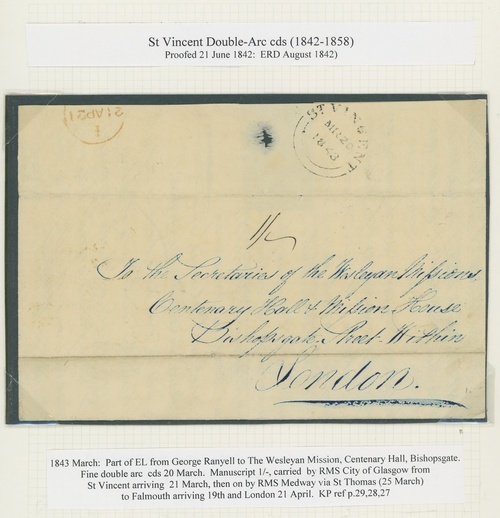 St Vincent Double-Arc cds (1842-1858)
Proofed 21 June 1842: ERD August 1842)
21 AP 21
ST VINCENT
1843
1/-
To the Secretaries of the Wesleyan Missions.
Centenary Hall & Mission House
Bishopsgate Street Within
London.
1843 March: Part of EL from George Ranyell to The Wesleyan Mission, Centenary Hall, Bishopsgate.
Fine double arc cds 20 March. Manuscript 1/-, carried by RMS City of Glasgow from
St Vincent arriving 21 March, then on by RMS Medway via St Thomas (25 March)
to Falmouth arriving 19th and London 21 April. KP ref p.29,28,27